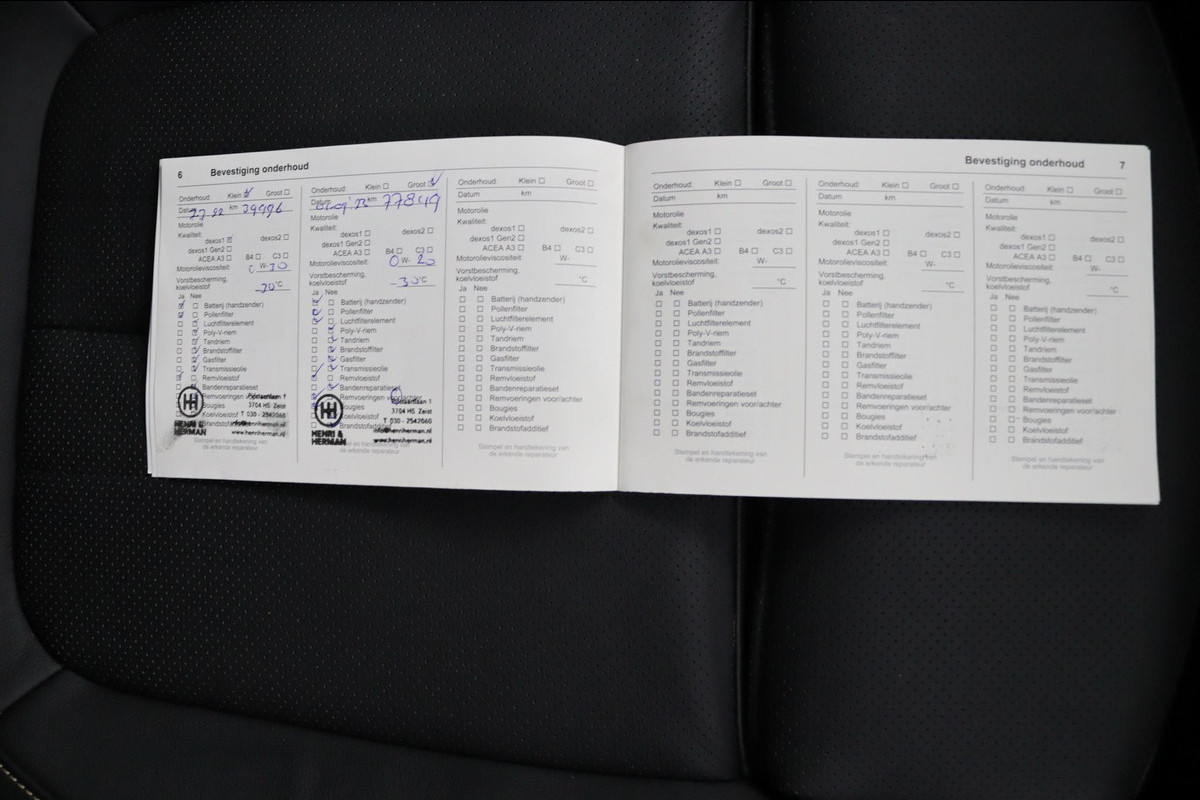 6 Bevestiging onderhoud
Onderhoud: Klein Groot
Datum 27-22 km 39996
Motorolie
Kwaliteit:
dexos1 dexos2
dexos1 Gen2
ACEA A3 B4 C3
Motorolieviscositeit: 0 W- 30
Vorstbescherming,
koelvloeistof -30 °C
Ja Nee
Batterij (handzender)
Pollenfilter
Luchtfilterelement
Poly-V-riem
Tandriem
Brandstoffilter
Gasfilter
Transmissieolie
Remvloeistof
Bandenreparatieset
Remvoeringen
Bougies
Koelvloeistof
HENRI &
HERMAN
3704 HS Zeist
T 030 - 2542060
info@henriherman.nl
www.henriherman.nl
Stempel en handtekening van
de erkende reparateur
Onderhoud: Klein Groot
Datum km 77849
Motorolie
Kwaliteit:
dexos1 dexos2
dexos1 Gen2
ACEA A3 B4 C3
Motorolieviscositeit: 0 W- 20
Vorstbescherming,
koelvloeistof -30 °C
Ja Nee
Batterij (handzender)
Pollenfilter
Luchtfilterelement
Poly-V-riem
Tandriem
Brandstoffilter
Gasfilter
Transmissieolie
Remvloeistof
Bandenreparatieset
Remvoeringen voor/achter
Bougies
Koelvloeistof
Brandstofadditief
HENRI &
HERMAN
3704 HS Zeist
T 030 - 2542060
info@henriherman.nl
www.henriherman.nl
de erkende reparateur
Onderhoud: Klein Groot
Datum km
Motorolie
Kwaliteit:
dexos1 dexos2
dexos1 Gen2
ACEA A3 B4 C3
Motorolieviscositeit: W-
Vorstbescherming,
koelvloeistof °C
Ja Nee
Batterij (handzender)
Pollenfilter
Luchtfilterelement
Poly-V-riem
Tandriem
Brandstoffilter
Gasfilter
Transmissieolie
Remvloeistof
Bandenreparatieset
Remvoeringen voor/achter
Bougies
Koelvloeistof
Brandstofadditief
Stempel en handtekening van
de erkende reparateur
Bevestiging onderhoud 7
Onderhoud: Klein Groot
Datum km
Motorolie
Kwaliteit:
dexos1 dexos2
dexos1 Gen2
ACEA A3 B4 C3
Motorolieviscositeit: W-
Vorstbescherming,
koelvloeistof °C
Ja Nee
Batterij (handzender)
Pollenfilter
Luchtfilterelement
Poly-V-riem
Tandriem
Brandstoffilter
Gasfilter
Transmissieolie
Remvloeistof
Bandenreparatieset
Remvoeringen voor/achter
Bougies
Koelvloeistof
Brandstofadditief
Stempel en handtekening van
de erkende reparateur
Onderhoud: Klein Groot
Datum km
Motorolie
Kwaliteit:
dexos1 dexos2
dexos1 Gen2
ACEA A3 B4 C3
Motorolieviscositeit: W-
Vorstbescherming,
koelvloeistof °C
Ja Nee
Batterij (handzender)
Pollenfilter
Luchtfilterelement
Poly-V-riem
Tandriem
Brandstoffilter
Gasfilter
Transmissieolie
Remvloeistof
Bandenreparatieset
Remvoeringen voor/achter
Bougies
Koelvloeistof
Brandstofadditief
Stempel en handtekening van
de erkende reparateur
Onderhoud: Klein Groot
Datum km
Motorolie
Kwaliteit:
dexos1 dexos2
dexos1 Gen2
ACEA A3 B4 C3
Motorolieviscositeit: W-
Vorstbescherming,
koelvloeistof °C
Ja Nee
Batterij (handzender)
Pollenfilter
Luchtfilterelement
Poly-V-riem
Tandriem
Brandstoffilter
Gasfilter
Transmissieolie
Remvloeistof
Bandenreparatieset
Remvoeringen voor/achter
Bougies
Koelvloeistof
Brandstofadditief
Stempel en handtekening van
de erkende reparateur